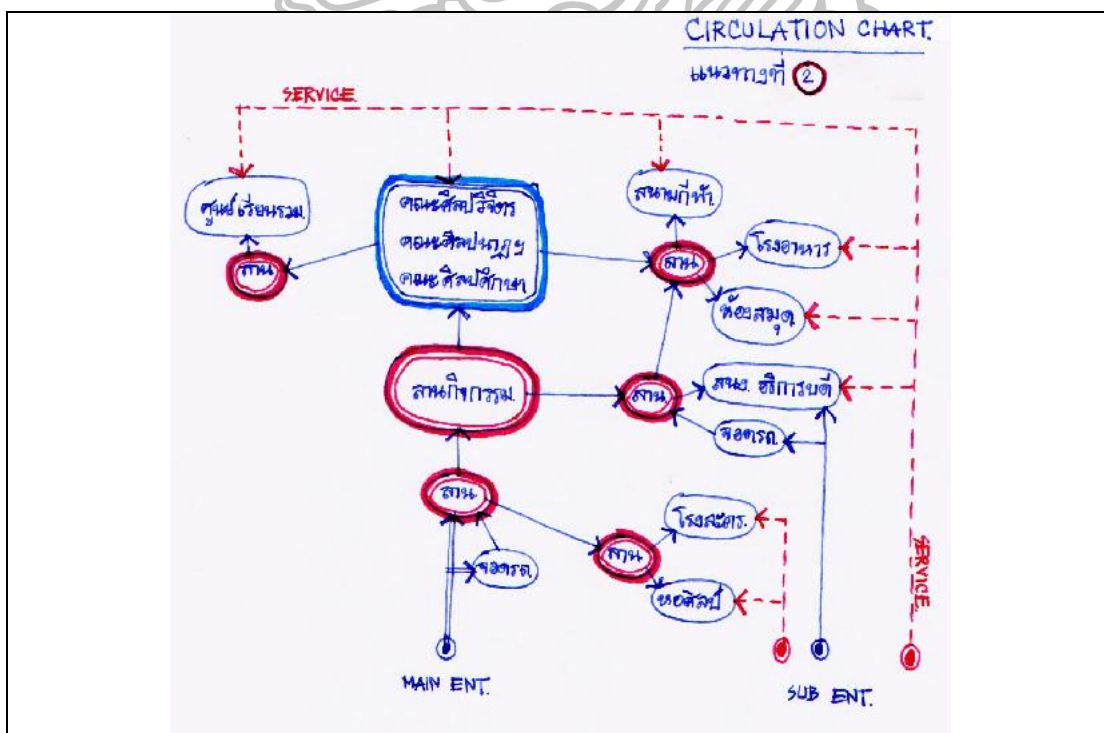 CIRCULATION CHART.
แนวทางที่ 2
SERVICE
ศูนย์เรียนรวม.
คณะศิลปวิจิตร
คณะศิลปนาฏฯ
คณะศิลปศึกษา
สนามกีฬา.
ลาน
ลาน
โรงอาหาร
ห้องสมุด.
ลานกิจกรรม.
ลาน
สนง. อธิการบดี
จอดรถ.
ลาน.
โรงละคร.
จอดรถ.
ลาน
หอศิลป์
SERVICE.
MAIN ENT.
SUB ENT.